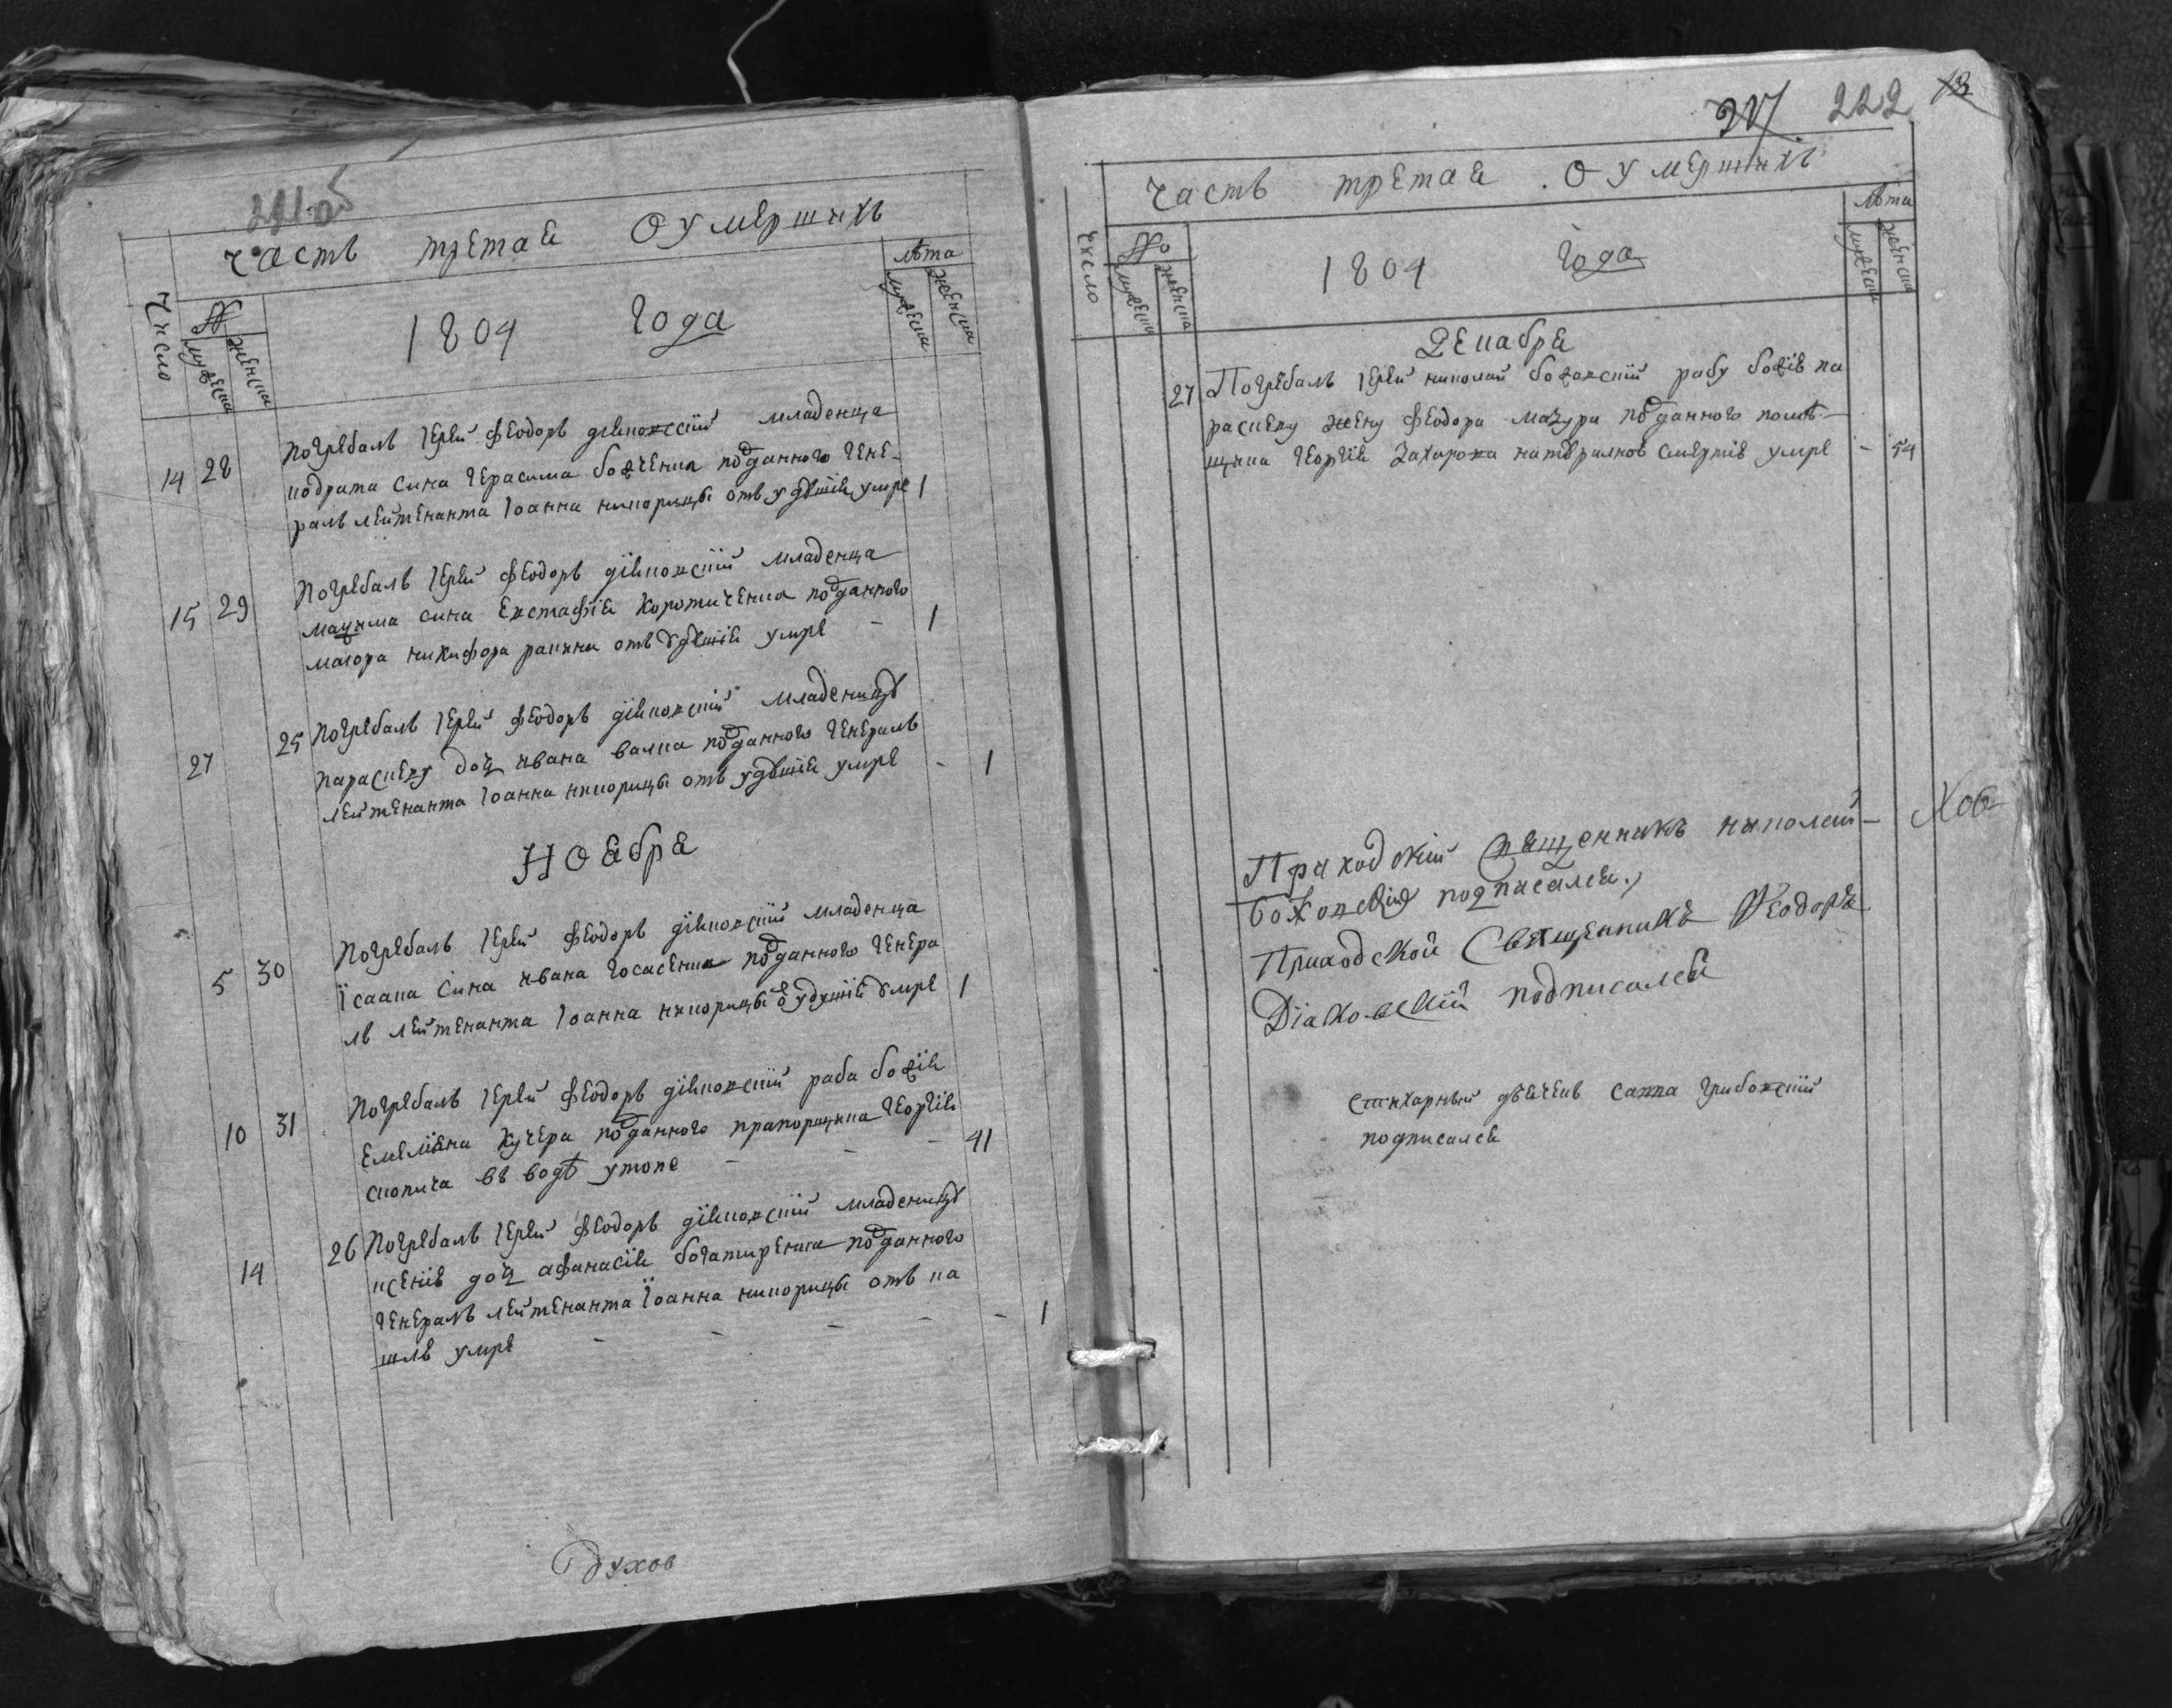 221об
часть третая О умерших
Число № мужеска женска 1804 Года лѣта мужеска женска
14 28 Погребалъ Іерей Феодоръ дїяковскїй младенца
кодрата сина Герасима божченка подданного Гене-
ралъ лейтенанта Іоанна никорицы отъ удушія умре 1
15 29 Погребалъ Іерей Феодоръ дїяковскїй младенца
мацима сина Евстафїя Коротиченка подданного
маїора никифора ракини отъ удушія умре - 1
27 25 Погребалъ Іерей Феодоръ дїяковскїй младеницу
параскеву доч ивана валка подданного Генералъ
лейтенанта Іоанна никорицы отъ удушія умре - 1
НОября
5 30 Погребалъ Іерей Феодоръ дїяковскїй младенца
Їсаака Сина ивана Госасенка подданного Генера
лъ лейтенанта Іоанна никорицы о удушія умре 1
10 31 Погребалъ Іерей Феодоръ дїяковскїй раба божїя
Емелїяна Кучера подданного прапорщика Георгїя
скопича въ водѣ утопе - - - 41
14 26 Погребалъ Іерей Феодоръ дїяковскїй младеницу
ксенїю доч афанасїя богатиренка подданного
Генералъ лейтенанта Їоанна никорицы отъ ка
шля умре - - - - - 1
Духов
217 222 13
часть третая О умерших
Число № мужеска женска 1804 Года лѣта мужеска женска
Декабря
27 Погребалъ Іерей николай божовскїй рабу божїю па
раскеву жену Феодора мазура подданного помѣ-
щика Георгїя Захарова натуралною смертїю умре - 54
Приходскїй Священникъ николай
Божовскїй подписался
Приходской Священникъ Феодоръ
Дїаковскїй подписался
хов
стихарный дьячекъ савва грибовскїй
подписался